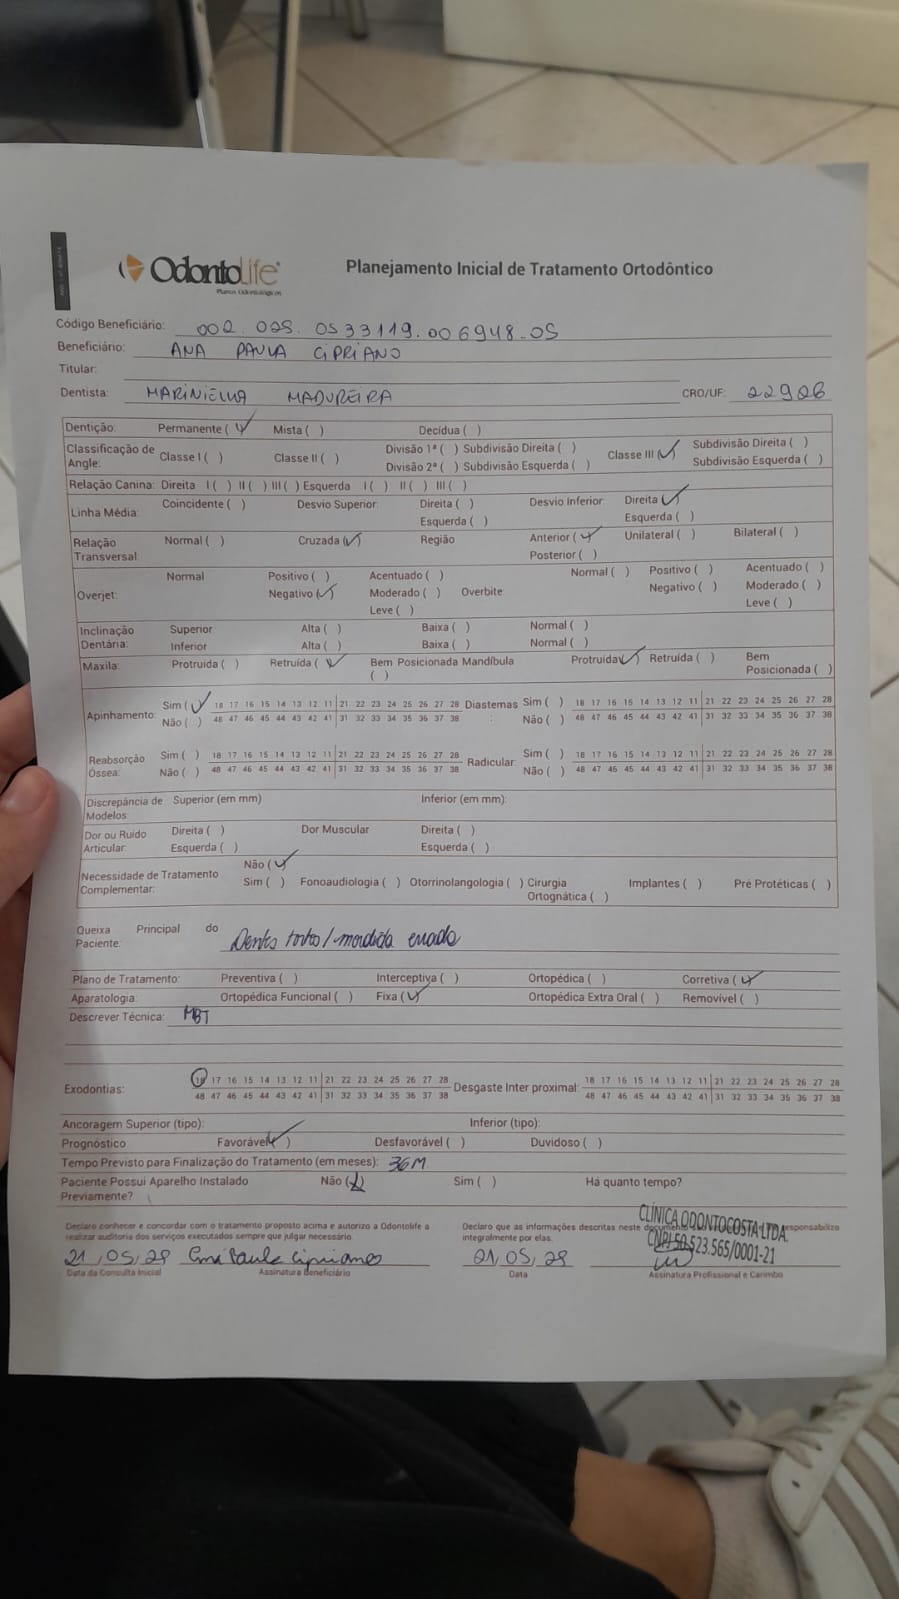 OdontoLife
Planos Odontológicos
Planejamento Inicial de Tratamento Ortodôntico
Código Beneficiário: 002.025.0533119.006948-05
Beneficiário: ANA PAULA CIPRIANO
Titular:
Dentista: MADUREIRA CRO/UF:
Dentição: Permanente (✓) Mista ( ) Decídua ( )
Classificação de Angle: Classe I ( ) Classe II ( ) Divisão 1ª ( ) Subdivisão Direita ( ) Classe III (✓) Subdivisão Direita ( )
Divisão 2ª ( ) Subdivisão Esquerda ( ) Subdivisão Esquerda ( )
Relação Canina: Direita I ( ) II ( ) III ( ) Esquerda I ( ) II ( ) III ( )
Linha Média: Coincidente ( ) Desvio Superior: Direita ( ) Desvio Inferior: Direita (✓)
Esquerda ( ) Esquerda ( )
Relação Transversal: Normal ( ) Cruzada (✓) Região Anterior (✓) Unilateral ( ) Bilateral ( )
Posterior ( )
Overjet: Normal Positivo ( ) Acentuado ( ) Overbite Normal ( ) Positivo ( ) Acentuado ( )
Negativo (✓) Moderado ( ) Negativo ( ) Moderado ( )
Leve ( ) Leve ( )
Inclinação Dentária: Superior Alta ( ) Baixa ( ) Normal ( )
Inferior Alta ( ) Baixa ( ) Normal ( )
Maxila: Protruída ( ) Retruída (✓) Bem Posicionada ( ) Mandíbula Protruída (✓) Retruída ( ) Bem Posicionada ( )
Apinhamento: Sim (✓) 18 17 16 15 14 13 12 11 21 22 23 24 25 26 27 28 Diastemas: Sim ( ) 18 17 16 15 14 13 12 11 21 22 23 24 25 26 27 28
Não ( ) 48 47 46 45 44 43 42 41 31 32 33 34 35 36 37 38 Não ( ) 48 47 46 45 44 43 42 41 31 32 33 34 35 36 37 38
Reabsorção Óssea: Sim ( ) 18 17 16 15 14 13 12 11 21 22 23 24 25 26 27 28 Radicular: Sim ( ) 18 17 16 15 14 13 12 11 21 22 23 24 25 26 27 28
Não ( ) 48 47 46 45 44 43 42 41 31 32 33 34 35 36 37 38 Não ( ) 48 47 46 45 44 43 42 41 31 32 33 34 35 36 37 38
Discrepância de Modelos: Superior (em mm) Inferior (em mm):
Dor ou Ruído Articular: Direita ( ) Dor Muscular Direita ( )
Esquerda ( ) Esquerda ( )
Necessidade de Tratamento Complementar: Não (✓)
Sim ( ) Fonoaudiologia ( ) Otorrinolangologia ( ) Cirurgia Ortognática ( ) Implantes ( ) Pré Protéticas ( )
Queixa Principal do Paciente: Dentes tortos/mordida errada
Plano de Tratamento: Preventiva ( ) Interceptiva ( ) Ortopédica ( ) Corretiva (✓)
Aparatologia: Ortopédica Funcional ( ) Fixa (✓) Ortopédica Extra Oral ( ) Removível ( )
Descrever Técnica: MBT
Exodontias: 18 17 16 15 14 13 12 11 21 22 23 24 25 26 27 28 Desgaste Inter proximal: 18 17 16 15 14 13 12 11 21 22 23 24 25 26 27 28
48 47 46 45 44 43 42 41 31 32 33 34 35 36 37 38 48 47 46 45 44 43 42 41 31 32 33 34 35 36 37 38
Ancoragem Superior (tipo): Inferior (tipo):
Prognóstico Favorável (✓) Desfavorável ( ) Duvidoso ( )
Tempo Previsto para Finalização do Tratamento (em meses): 36M
Paciente Possui Aparelho Instalado Previamente? Não (X) Sim ( ) Há quanto tempo?
Declaro conhecer e concordar com o tratamento proposto acima e autorizo a Odontolife a
realizar auditoria dos serviços executados sempre que julgar necessário.
Declaro que as informações descritas neste responsabilizo
integralmente por elas.
CLÍNICA ODONTOCOSTA LTDA.
CNPJ 50.523.565/0001-21
21/05/28 Ana Paula Cipriano 21/05/28
Data da Consulta Inicial Assinatura Beneficiário Data Assinatura Profissional e Carimbo